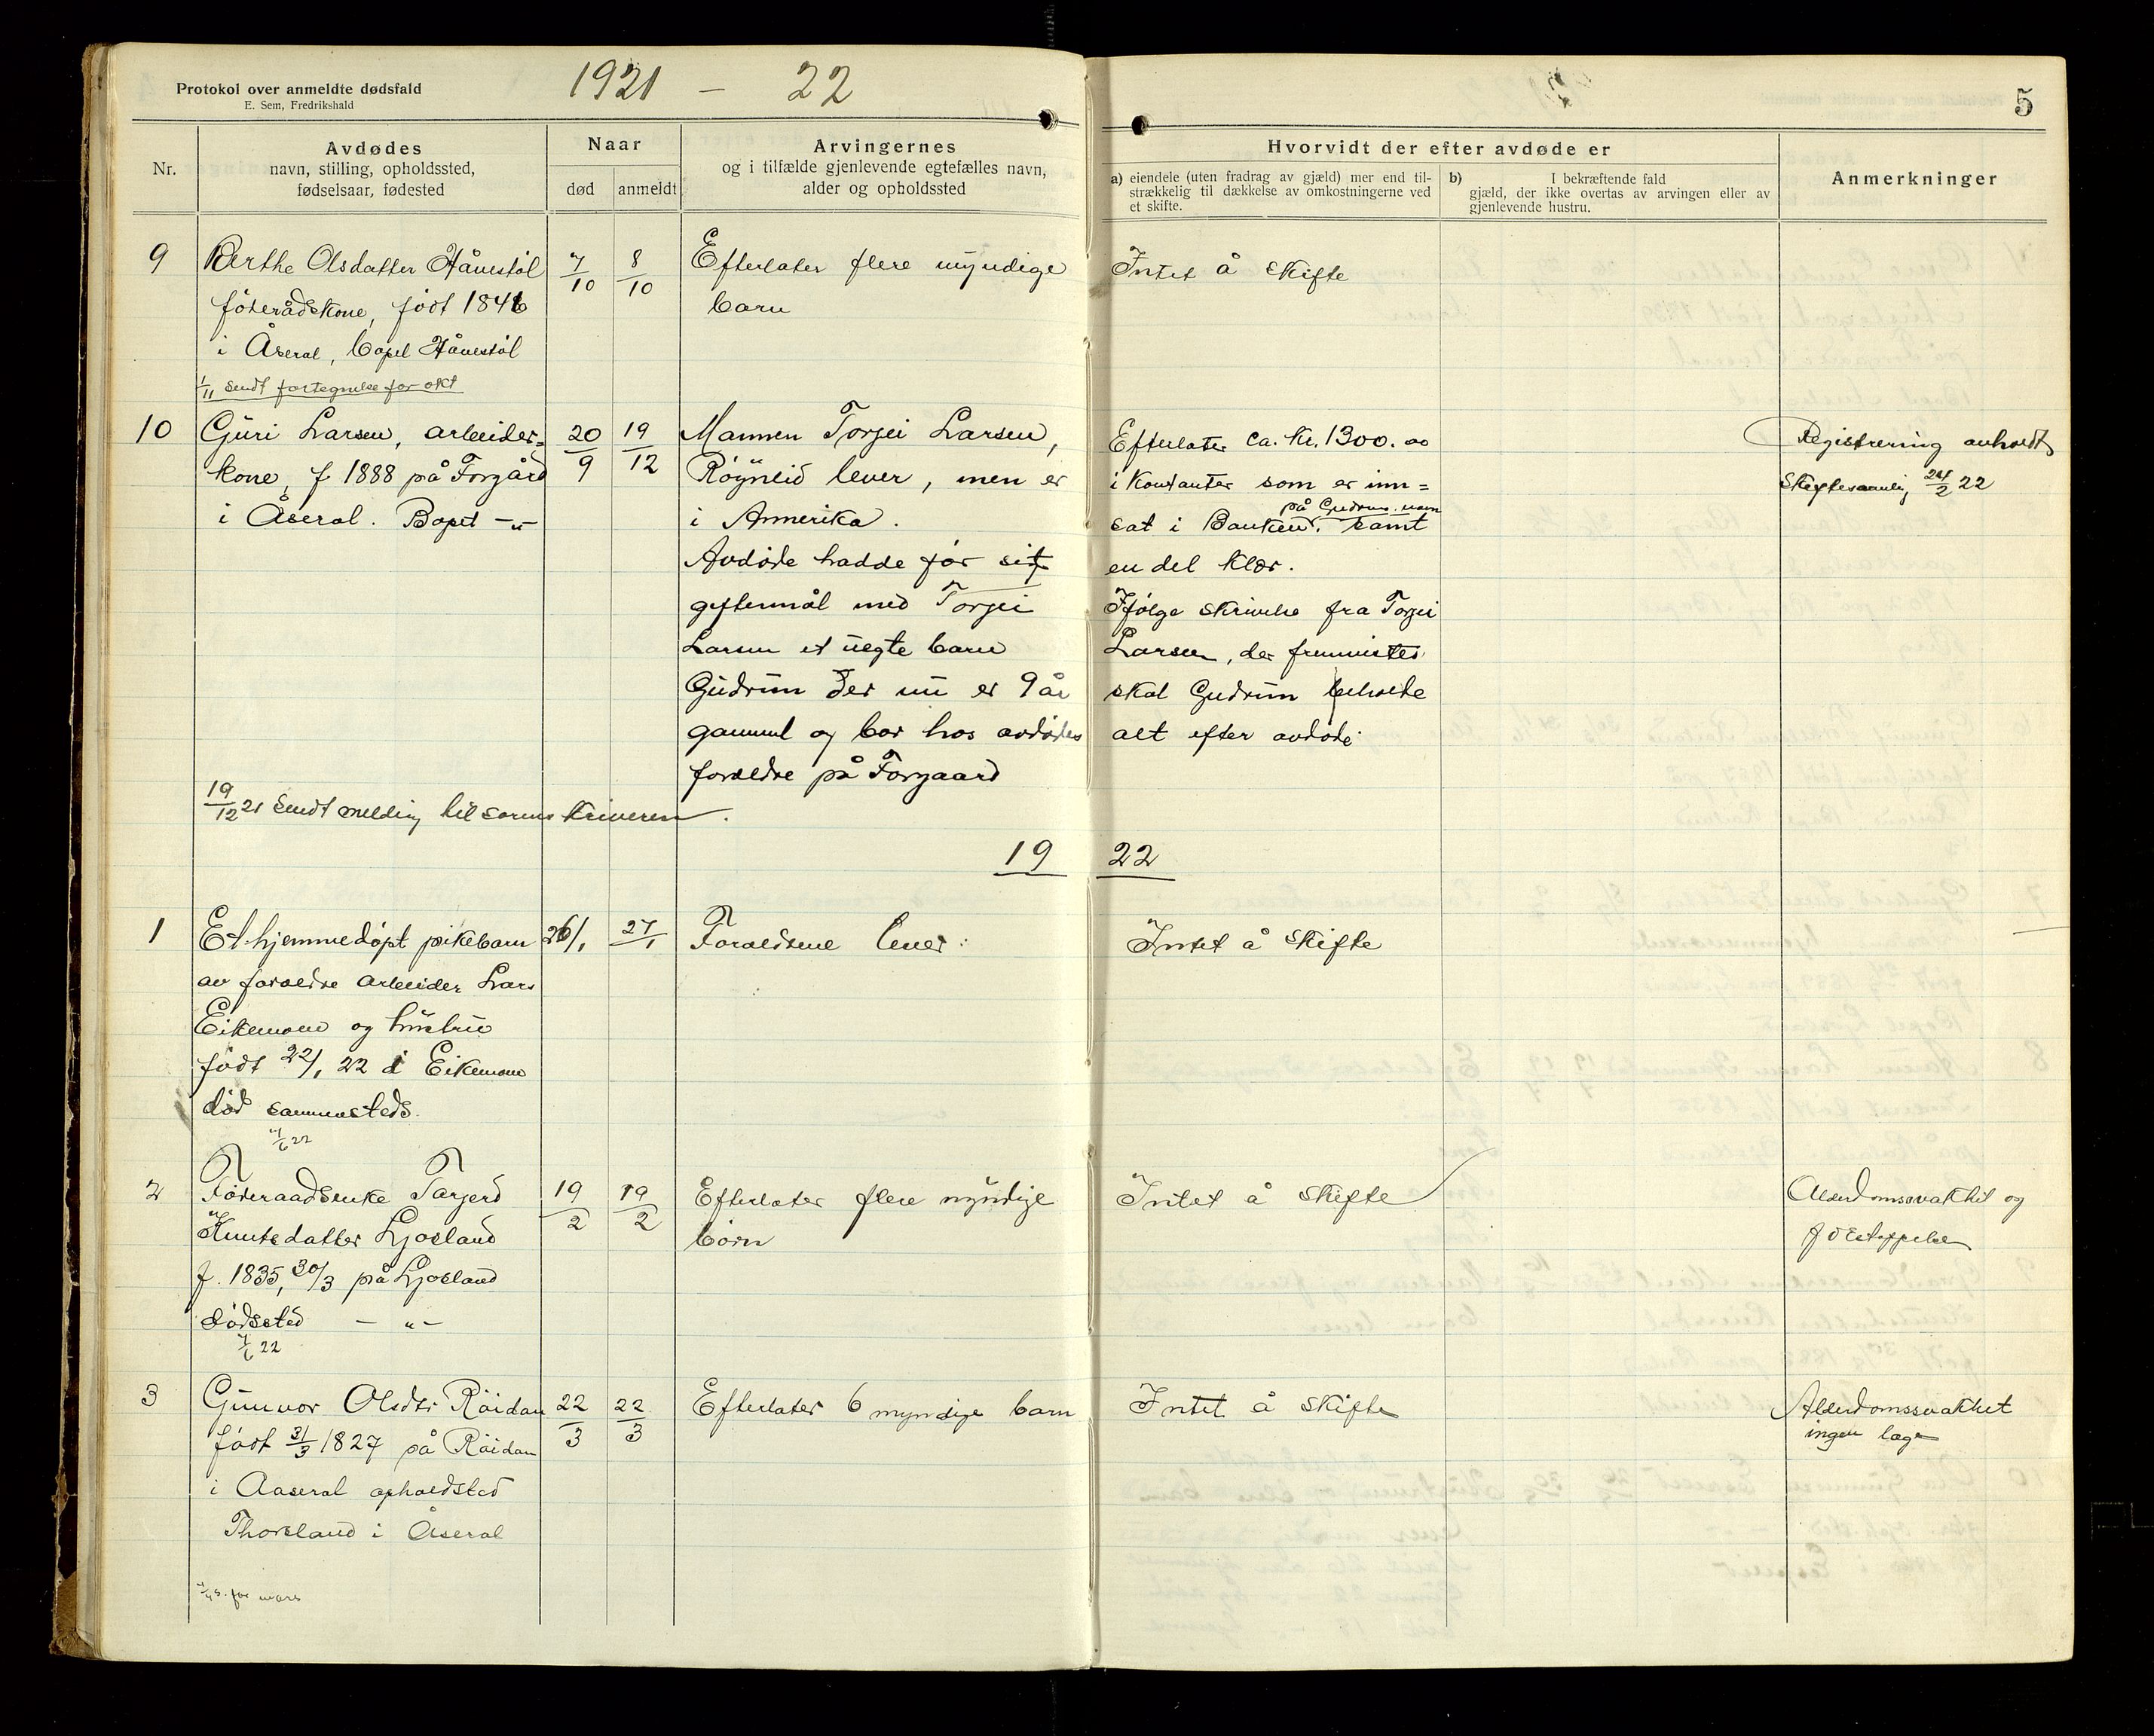 Protokol over anmeldte dødsfald
E. Sem, Fredrikshald
1921 – 22
5
Nr.
Avdødes
navn, stilling, opholdssted,
fødselsaar, fødested
Naar
død
anmeldt
Arvingernes
og i tilfælde gjenlevende egtefælles navn,
alder og opholdssted
Hvorvidt der efter avdøde er
a) eiendele (uten fradrag av gjæld) mer end til-
strækkelig til dækkelse av omkostningerne ved
et skifte.
b) I bekræftende fald
gjæld, der ikke overtas av arvingen eller av
gjenlevende hustru.
Anmerkninger
9
Berthe Olsdatter Håvestöl
föderådskone, födt 1846
i Åseral, bopel Håvestöl
1/11 sendt fortegnelse for okt
7/10
8/10
Efterlater flere myndige
barn
Intet å skifte
10
Guri Larsen, arbeider=
kone, f. 1888 på Forgård
i Åseral. Bopel –"–
20/9
19/12
Mannen Torjei Larsen,
Röyneliд lever, men er
i Amerika.
Avdöde hadde för sit
giftermål med Torjei
Larsen et uegte barn
Gudrun der nu er 9 år
gammel og bor hos avdödes
foreldre på Forgaard
Efterlater ca. kr. 1300.00
i kontanter som er inn=
på Gudruns navn
sat i Banken. samt
en del klær.
Ifölge skrivelse fra Torjei
Larsen, der fremvistes
skal Gudrun beholde
alt efter avdöde.
Registrering avholdt
Skiftesamling 24/2 22
19/12 21 Sendt melding til sorenskriveren.
19 22
1
Et hjemmedöpt pikebarn
av foreldre arbeider Lars
Eikemom og hustru
födt 22/1 22 i Eikemom
död sammesteds.
26/1
27/1
Foreldrene lever.
Intet å skifte
2
Föderaadsenke Targerd
Knutsdatter Ljosland
f. 1835, 30/3 på Ljosland
dödssted – " –
19/2
19/2
Efterlater flere myndige
börn
Intet å skifte
Alderdomssvakhet og
3
Gunvor Olsdtr Röidan
födt 31/3 1827 på Röidan
i Aaseral opholdsted
Thorsland i Åseral
for mars
22/3
22/3
Efterlater 6 myndige barn
Intet å skifte
Alderdomssvakhet
ingen læge